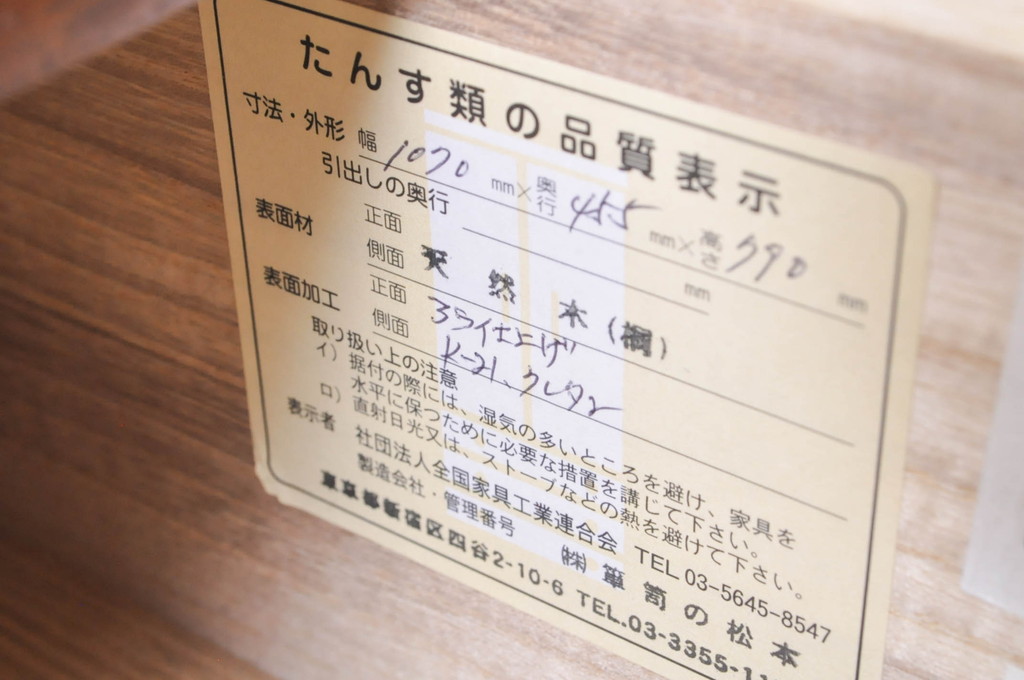 たんす類の品質表示
寸法・外形 幅 1070 mm×奥行 455 mm×高さ 790 mm
引出しの奥行 mm
表面材 正面
側面 天然木(桐)
表面加工 正面 ライ仕上げ
側面 K-21、
取り扱い上の注意
イ)据付の際には、湿気の多いところを避け、家具を
水平に保つために必要な措置を講じて下さい。
ロ)直射日光又は、ストーブなどの熱を避けて下さい。
表示者 社団法人全国家具工業連合会 TEL 03-5645-8547
製造会社・管理番号 ㈱箪笥の松本
東京都新宿区四谷2-10-6 TEL.03-3355-1